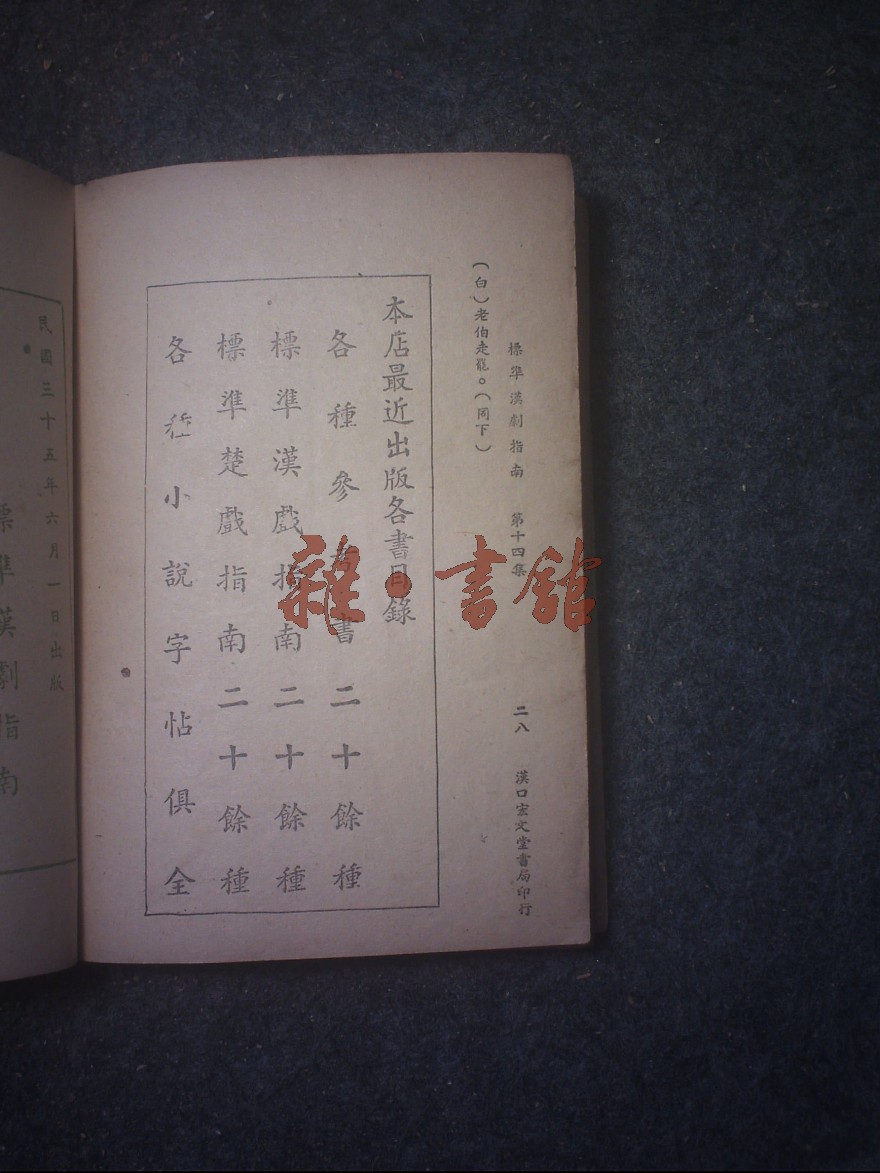 標準漢劇指南 第十四集 二八 漢口宏文堂書局印行
(白)老伯走罷。(同下)
本店最近出版各書目錄
各種參考書二十餘種
標準漢戲指南二十餘種
標準楚戲指南二十餘種
各種小說字帖俱全
民國三十五年六月一日出版
標準漢劇指南
雜·書館